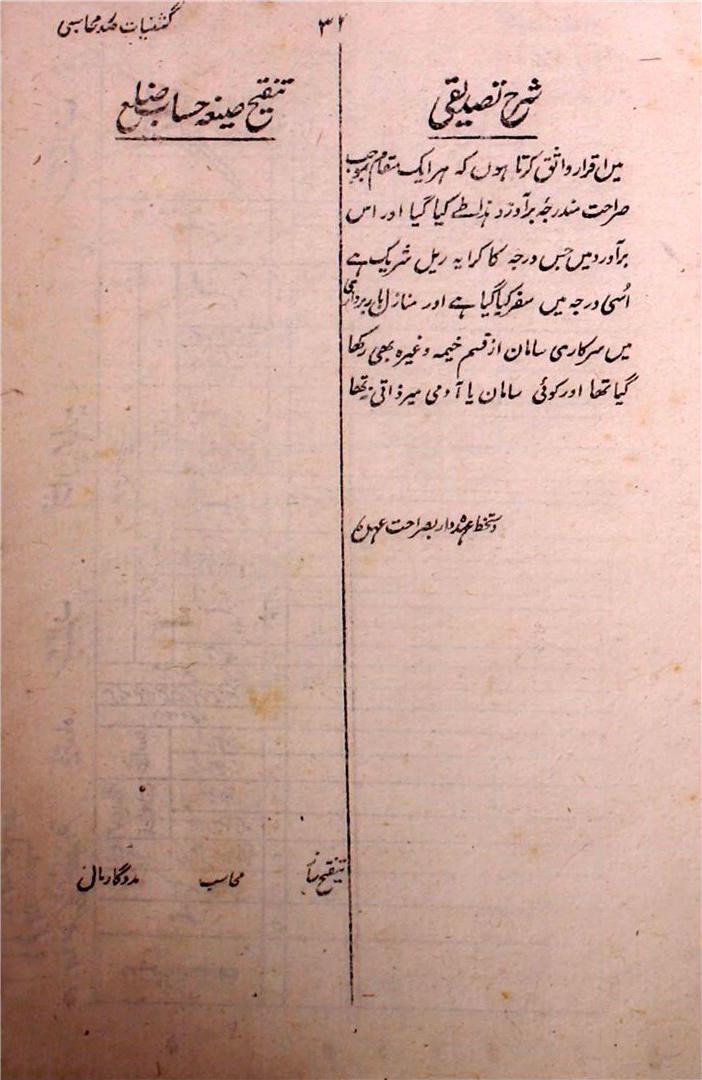 گشتیات صدر محاسبی
۳۲
شرح تصدیقی
میں اقرار واثق کرتا ہوں کہ ہر ایک مقام بموجب
صراحت مندرجہ برآورد ہذا طے کیا گیا اور اس
برآورد میں جس درجہ کا کرایہ ریل شریک ہے
اُسی درجہ میں سفر کیا گیا ہے اور منازل باربرداری
میں سرکاری سامان از قسم خیمہ وغیرہ بھی رکھا
گیا تھا اور کوئی سامان یا آدمی میرا ذاتی نہ تھا
دستخط عہدہ دار بصراحت عہدہ
تنقیح صیغہ حساب ضلع
تنقیح ساز محاسب مددگار مال